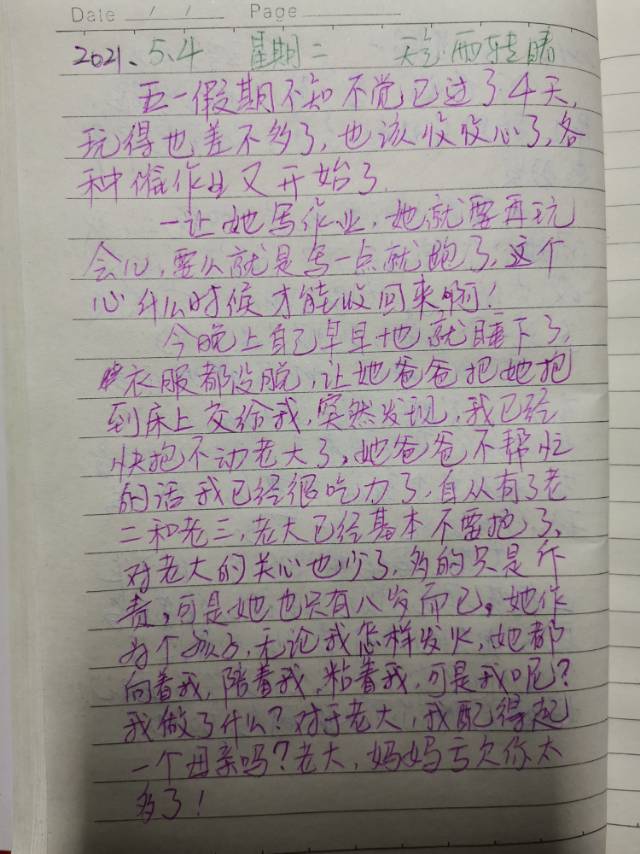 Date / / Page
2021.5.4 星期二 天气:雨转晴
五一假期不知不觉已过了4天,
玩得也差不多了,也该收收心了,各
种催作业又开始了.
一让她写作业,她就要再玩
会儿,要么就是写一点就跑了,这个
心什么时候才能收回来啊!
今晚上自己早早地就睡下了,
衣服都没脱,让她爸爸把她抱
到床上交给我,突然发现,我已经
快抱不动老大了,她爸爸不帮忙
的话我已经很吃力了,自从有了老
二和老三,老大已经基本不需抱了,
对老大的关心也少了,多的只是斥
责,可是她也只有八岁而已。她作
为个孩子,无论我怎样发火,她都
向着我,陪着我,粘着我,可是我呢?
我做了什么?对于老大,我配得起
一个母亲吗?老大,妈妈亏欠你太
多了!